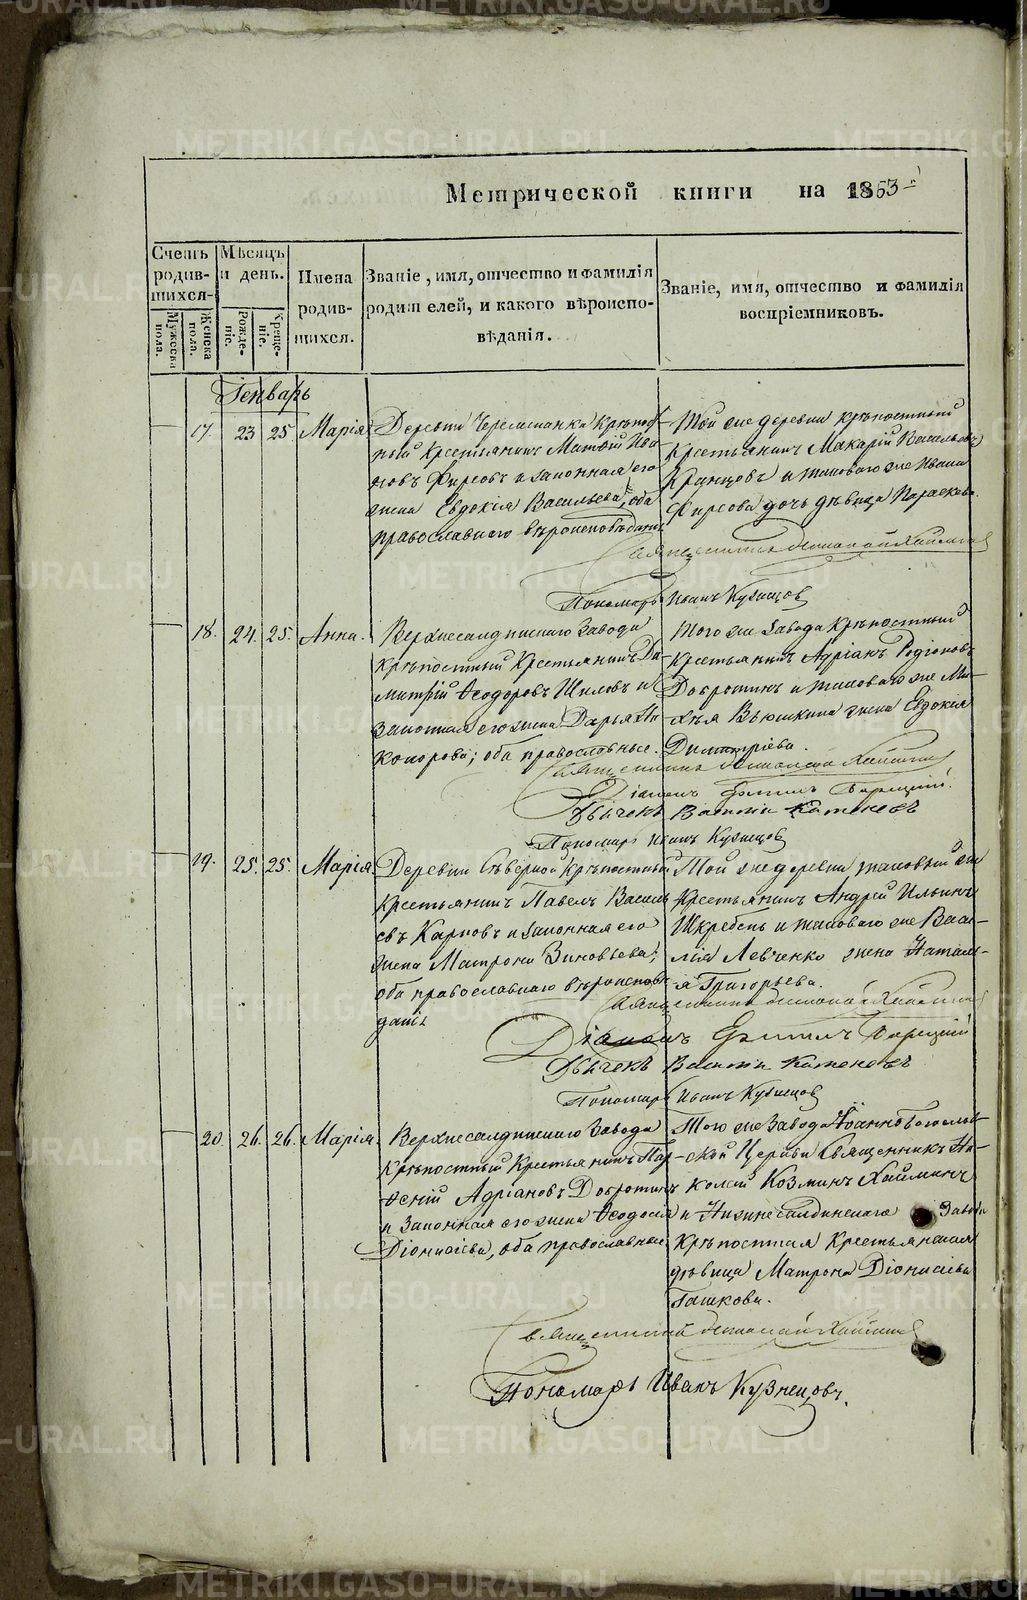 Метрической книги на 1853 г.
Счетъ родившихся.
Мѣсяцъ и день.
Имена родившихся.
Званіе, имя, отчество и фамилія родителей, и какого вѣроисповѣданія.
Званіе, имя, отчество и фамилія воспріемниковъ.
Мужеска пола.
Женска пола.
Рожденіе.
Крещеніе.
Генварь
17. 23 25 Марія
Деревни Черемшанки крѣпост-
ный Крестьянинъ Матвій Ива-
новъ Фирсовъ и законная его
жена Евдокія Васильева, оба
православнаго вѣроисповѣданія
Той же деревни крѣпостный
Крестьянинъ Макарій Васильевъ
и таковаго же Ивана
Фирсова дочь дѣвица Параскева.
Священникъ Николай Хайминъ
Пономарь Иванъ Кузнецовъ
18. 24. 25. Анна.
Верхнесалдинскаго Завода
крѣпостный Крестьянинъ Ди-
митрій Ѳеодоровъ Шиловъ и
Законная его жена Дарья Ни-
канорова; оба православные.
Того же Завода Крѣпостный
крестьянинъ Адріанъ Родіоновъ
Добротинъ и таковаго же Ми-
Вьюшкина жена Евдокія
Димитріева.
Священникъ Николай Хайминъ
Діаконъ
Дьячекъ Василій
Пономарь Иванъ Кузнецовъ
19. 25. 25. Марія
Деревни Сѣверной Крѣпостный
Крестьянинъ Павелъ Василь
евъ Карповъ и законная его
жена Матрона Зиновьева,
оба православнаго вѣроисповѣ
данія
Той же деревни таковый же
Крестьянинъ Андрей Ильинъ
Шкребень и таковаго же Васи-
лія Левченко жена Наталь-
я Григорьева.
Священникъ Николай Хайминъ
Діаконъ
Дьячекъ Василій
Пономарь Иванъ Кузнецовъ
20. 26. 26. Марія.
Верхнесалдинскаго Завода
Крѣпостный Крестьянинъ Пар-
ѳеній Адріановъ Добротинъ
и Законная его жена Ѳеодосія
Діонисіева, оба православные
Того же Завода Іоанно Богослов-
ской Церкви Священникъ Ни-
колай Козминъ Хайминъ
и Нижнесалдинскаго Завода
Крѣпостная Крестьянская
дѣвица Матрона Діонисіева
Пашкова.
Священникъ Николай Хайминъ
Пономарь Иванъ Кузнецовъ.
METRIKI.GASO-URAL.RU